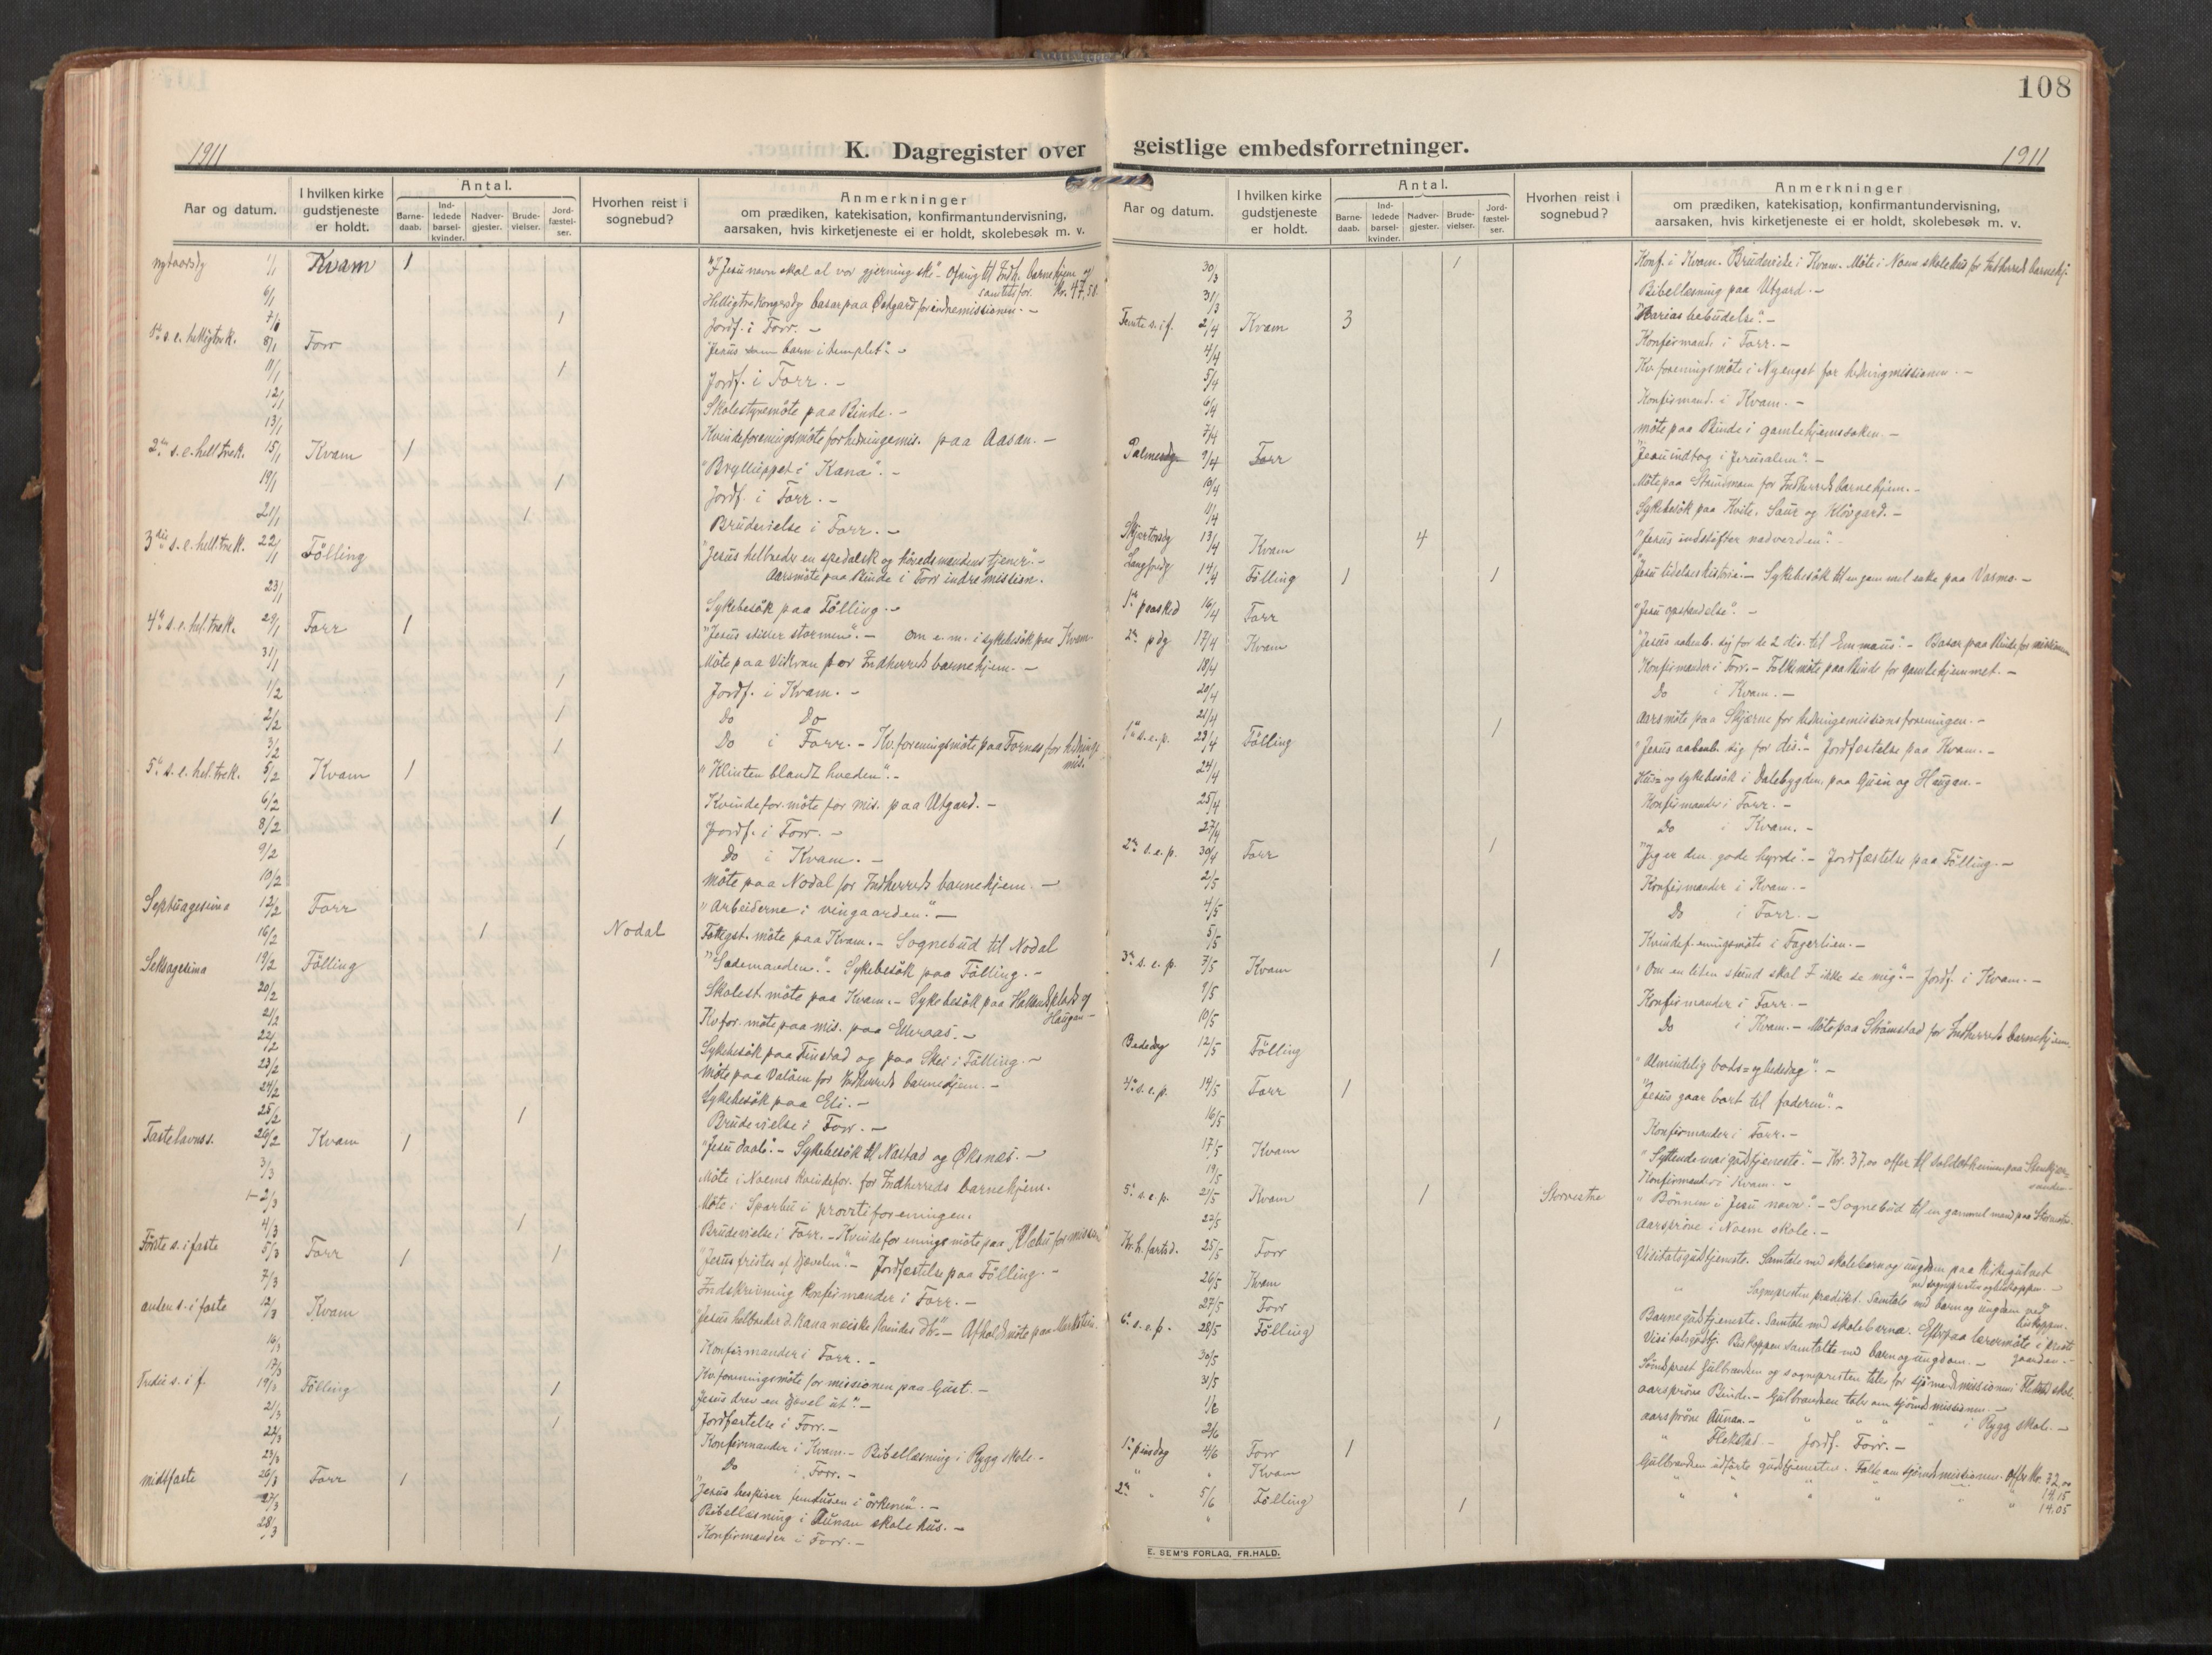 108
1911
K. Dagregister over geistlige embedsforretninger.
1911
Aar og datum.
I hvilken kirke gudstjeneste er holdt.
Antal.
Barne-daab.
Ind-ledede barsel-kvinder.
Nadver-gjester.
Brude-vielser.
Jord-fæstel-ser.
Hvorhen reist i sognebud?
Anmerkninger
om prædiken, katekisation, konfirmantundervisning,
aarsaken, hvis kirketjeneste ei er holdt, skolebesøk m. v.
nytaarsdg 1/1 Kvam 1 "I Jesu navn skal al vor gjerning ske" - Ofring til Indh. barnehjem og
samtits for. Kr. 47,50
6/1 Helligtrekongersdg basar paa for indremissionen. -
7/1 1 Jordf. i Forr. -
1ste s. e. helligtrek. 8/1 Forr "Jesus som barn i templet". -
11/1 1 Jordf. i Forr. -
12/1 Skolestyremöte paa Binde. -
13/1 Kvindeforeningsmöte for hedningemis. paa Aasan. -
2den s. e. hell trek. 15/1 Kvam 1 "Bryllüppet i Kana". -
19/1 1 Jordf. i Forr. -
21/1 1 Brüdevielse i Forr. -
3die s. e. hell. trek. 22/1 Fölling "Jesus helbreder en spedalsk og hövedsmandens tjener". -
Aarsmöte paa Binde i Forr indremission.
23/1 Sykebesök paa Fölling. -
4de s. e. hel. trek. 29/1 Forr 1 "Jesus stiller stormen". - om e. m. i sykebesök paa Kvam
31/1 Möte paa Vikvan for Indherreds barnehjem. -
1/2 1 Jordf. i Kvam. -
2/2 1 Do Do
3/2 1 Do i Forr. - Kv. foreningsmöte paa Fornes for hednings
mis.
5te s. e. hel. trek. 5/2 Kvam 1 "Klinten blandt hveden". -
6/2 Kvindefor. möte for mis. paa Utgard. -
8/2 1 Jordf. i Forr. -
9/2 1 Do i Kvam. -
10/2 Möte paa Nodal for Indherreds barnehjem. -
Septuagesima 12/2 Forr "Arbeiderne i vingaarden". -
16/2 1 Nodal Fattigst. möte paa Kvam. - Sognebud til Nodal
Seksagesima 19/2 Fölling "Sædemanden". - Sykebesök paa Fölling. -
20/2 Skolest. möte paa Kvam. - Sykebesök paa Hallandsplads og
Haugan -
21/2 Kv. for. möte paa mis. paa Elleraas. -
22/2 Sykebesök paa Finstad og paa Skei i Fölling. -
23/2 Möte paa Valöen for Indherreds barnehjem. -
24/2 Sykebesök paa Eli. -
25/2 1 Brüdevielse i Forr. -
Fastelavnss. 26/2 Kvam 1 "Jesu daab". - Sykebesök til Nastad og Öksnes. -
3/3 Möte i Noems Kvindefor. for Indherreds barnehjem.
1-2/3 Möte i Sparbu i provstiforeningen.
4/3 1 Brüdevielse i Forr. - Kvindeforeningsmöte paa Klæbu for mission
Förste s. i faste 5/3 Forr 1 1 "Jesus fristes af djævelen". - Jordfæstelse paa Fölling. -
7/3 Indskrivning konfirmander i Forr. -
anden s. i faste 12/3 Kvam "Jesus helbreder d. Kananæiske kvindes dtr". - Afholdsmöte paa
16/3 Konfirmander i Forr. -
17/3 Kv. foreningsmöte for missionen paa Gust. -
Tredie s. i f. 19/3 Fölling 1 "Jesus drev en djævel ut". -
21/3 Jordfæstelse i Forr. -
22/3 1 Konfirmander i Kvam. - Bibellæsning i Rygg skole -
23/3 Do i Forr. -
midtfaste 26/3 Forr 1 "Jesus bespiser femtusen i örkenen". -
27/3 Bibellæsning i Aunan skolehus. -
28/3 Konfirmander i Forr. -
Aar og datum.
I hvilken kirke gudstjeneste er holdt.
Antal.
Barne-daab.
Ind-ledede barsel-kvinder.
Nadver-gjester.
Brude-vielser.
Jord-fæstel-ser.
Hvorhen reist i sognebud?
Anmerkninger
om prædiken, katekisation, konfirmantundervisning,
aarsaken, hvis kirketjeneste ei er holdt, skolebesøk m. v.
30/3 1 Konf. i Kvam. Brudevielse i Kvam. Möte i Noem skolehus for Indherreds barnehj.
31/3 Bibellæsning paa Utgard. -
Femte s. i f. 2/4 Kvam 3 "Marias bebudelse". -
4/4 Konfirmand. i Forr. -
5/4 Kv. foreningsmöte i Nyenget for hedningmissionen. -
6/4 Konfirmand. i Kvam. -
7/4 möte paa Binde i gamlehjemssaken. -
Palmesdg 9/4 Forr "Jesu indtog i Jerusalem". -
10/4 Möte paa Standmoen for Indherreds barnehjem. -
11/4 Sykebesök paa Kvite, Saur og Klövgard. -
Skjærtorsdg 13/4 Kvam 4 "Jesus indstifter nadverden". -
Langfredg 14/4 Fölling 1 1 "Jesu lidelseshistorie". - Sykebesök til en gammel enke paa Vasmo. -
1ste paaskd 16/4 Forr "Jesu opstandelse". -
2den pdg 17/4 Kvam "Jesus aabenb. sig for de 2 dis. til Emmaus". - Basar paa Binde for missionen
18/4 Konfirmander i Forr. - Folkemöte paa Binde for gamlehjemmet. -
20/4 Do i Kvam. -
21/4 Aarsmöte paa Skjærne for hedningemissionsforeningen. -
1ste s. e. p. 23/4 Fölling 1 "Jesus aabenb. sig for dis". - Jordfæstelse paa Kvam. -
24/4 Hus- og sykebesök i Dalebygden, paa Guin og Haugan. -
25/4 Konfirmander i Forr. -
27/4 Do i Kvam. -
2den s. e. p. 30/4 Forr 1 "Jeg er den gode hyrde". - Jordfæstelse paa Fölling. -
2/5 Konfirmander i Kvam. -
4/5 Do i Forr. -
5/5 Kvindef-eningsmöte i Fagerlien. -
3die s. e. p. 7/5 Kvam 1 "Om en liten stund skal I ikke se mig". - Jordf. i Kvam. -
9/5 Konfirmander i Forr. -
10/5 Do i Kvam. - Möte paa Strömstad for Indherreds barnehjem.
Bededag 12/5 Fölling "Almindelig bods- og bededag". -
4de s. e. p. 14/5 Forr 1 "Jesus gaar bort til faderen". -
16/5 Konfirmander i Forr. -
17/5 Kvam "Syttendemaigüdstjeneste". - Kr. 37,00 offer til soldaterhjemmet paa Stenkjær-
sanden -
19/5 Konfirmander i Kvam. -
5te s. e. p. 21/5 Kvam 1 Storvestre "Bönnen i Jesu navn". - Sognebud til en gammel mand paa Storvestre.
22/5 Aarspröve i Noem skole. -
Kr. h. fartsd. 25/5 Forr Visitatsgüdstjeneste. Samtale med skolebarn og ungdom paa kirkegulvet
ved sognepresten og biskoppen. -
26/5 Kvam " Sognepresten prædiket. Samtale med barn og ungdom ved
biskoppen.
27/5 Forr Barnegüdstjeneste. Samtale med skolebarna. Efterpaa lærermöte i preste
gaarden. -
6te s. e. p. 28/5 Fölling Visitatsgüdstj. Biskoppen samtalte med barn og ungdom. -
30/5 Sömdsprest Gulbrandsen og sognepresten taler for sjömandsmissionen i Flekstad skole
31/5 aarspröve Binde. - Gulbrandsen taler om sjömdsmissionen. -
1/6 aarspröve Aunan. - " " " " i Rygg skole. -
2/6 1 " Flekstad - Jordf. Forr. -
1ste pinsdag 4/6 Forr 1 Gulbrandsen utförte gudstjenesten. Talte om sjömdsmissionen. Offer Kr. 32,00
" " Kvam " " " " " " 14,15
2den " 5/6 Fölling 1 " 14,05
E. SEM'S FORLAG, FR.HALD.